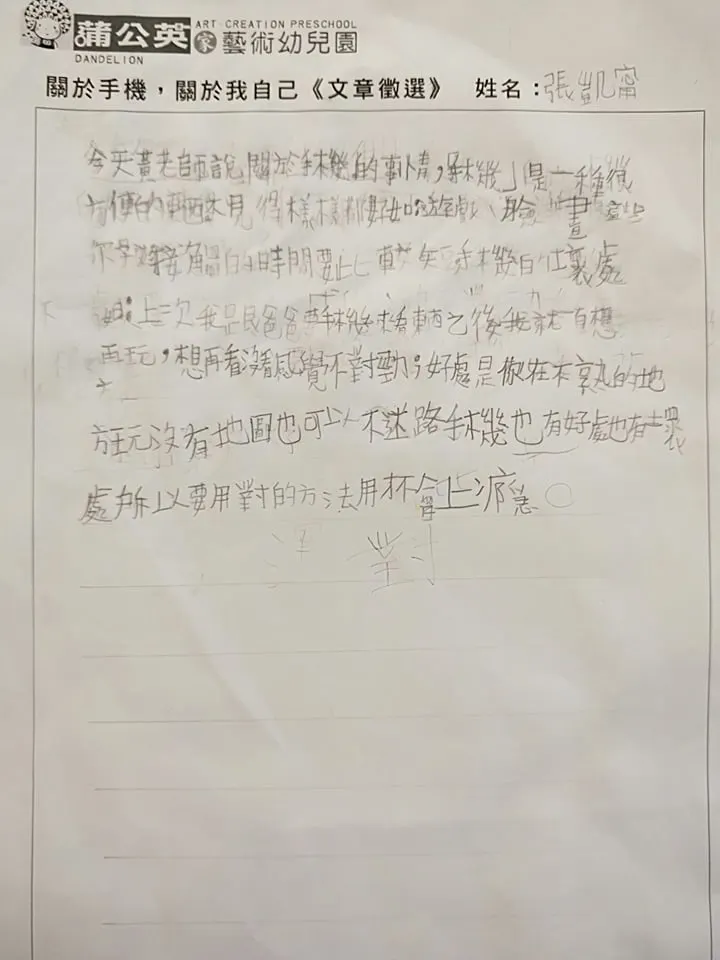 蒲公英 家 ART · CREATION PRESCHOOL
DANDELION 藝術幼兒園
關於手機，關於我自己《文章徵選》 姓名：張凱甯
今天黃老師說關於手機的事情，「手機」是一種很
方便的東西 得樣樣都好如遊戲、臉書這些
你 接觸的時間要比較 手機的壞處
上次我跟爸爸 手機來看東西之後我就有想
再玩，想再看 感覺不對勁；好處是你在不熟的地
方玩沒有地圖也可以不迷路手機也有好處也有壞
處所以要用對的方法用才不會上癮。
對